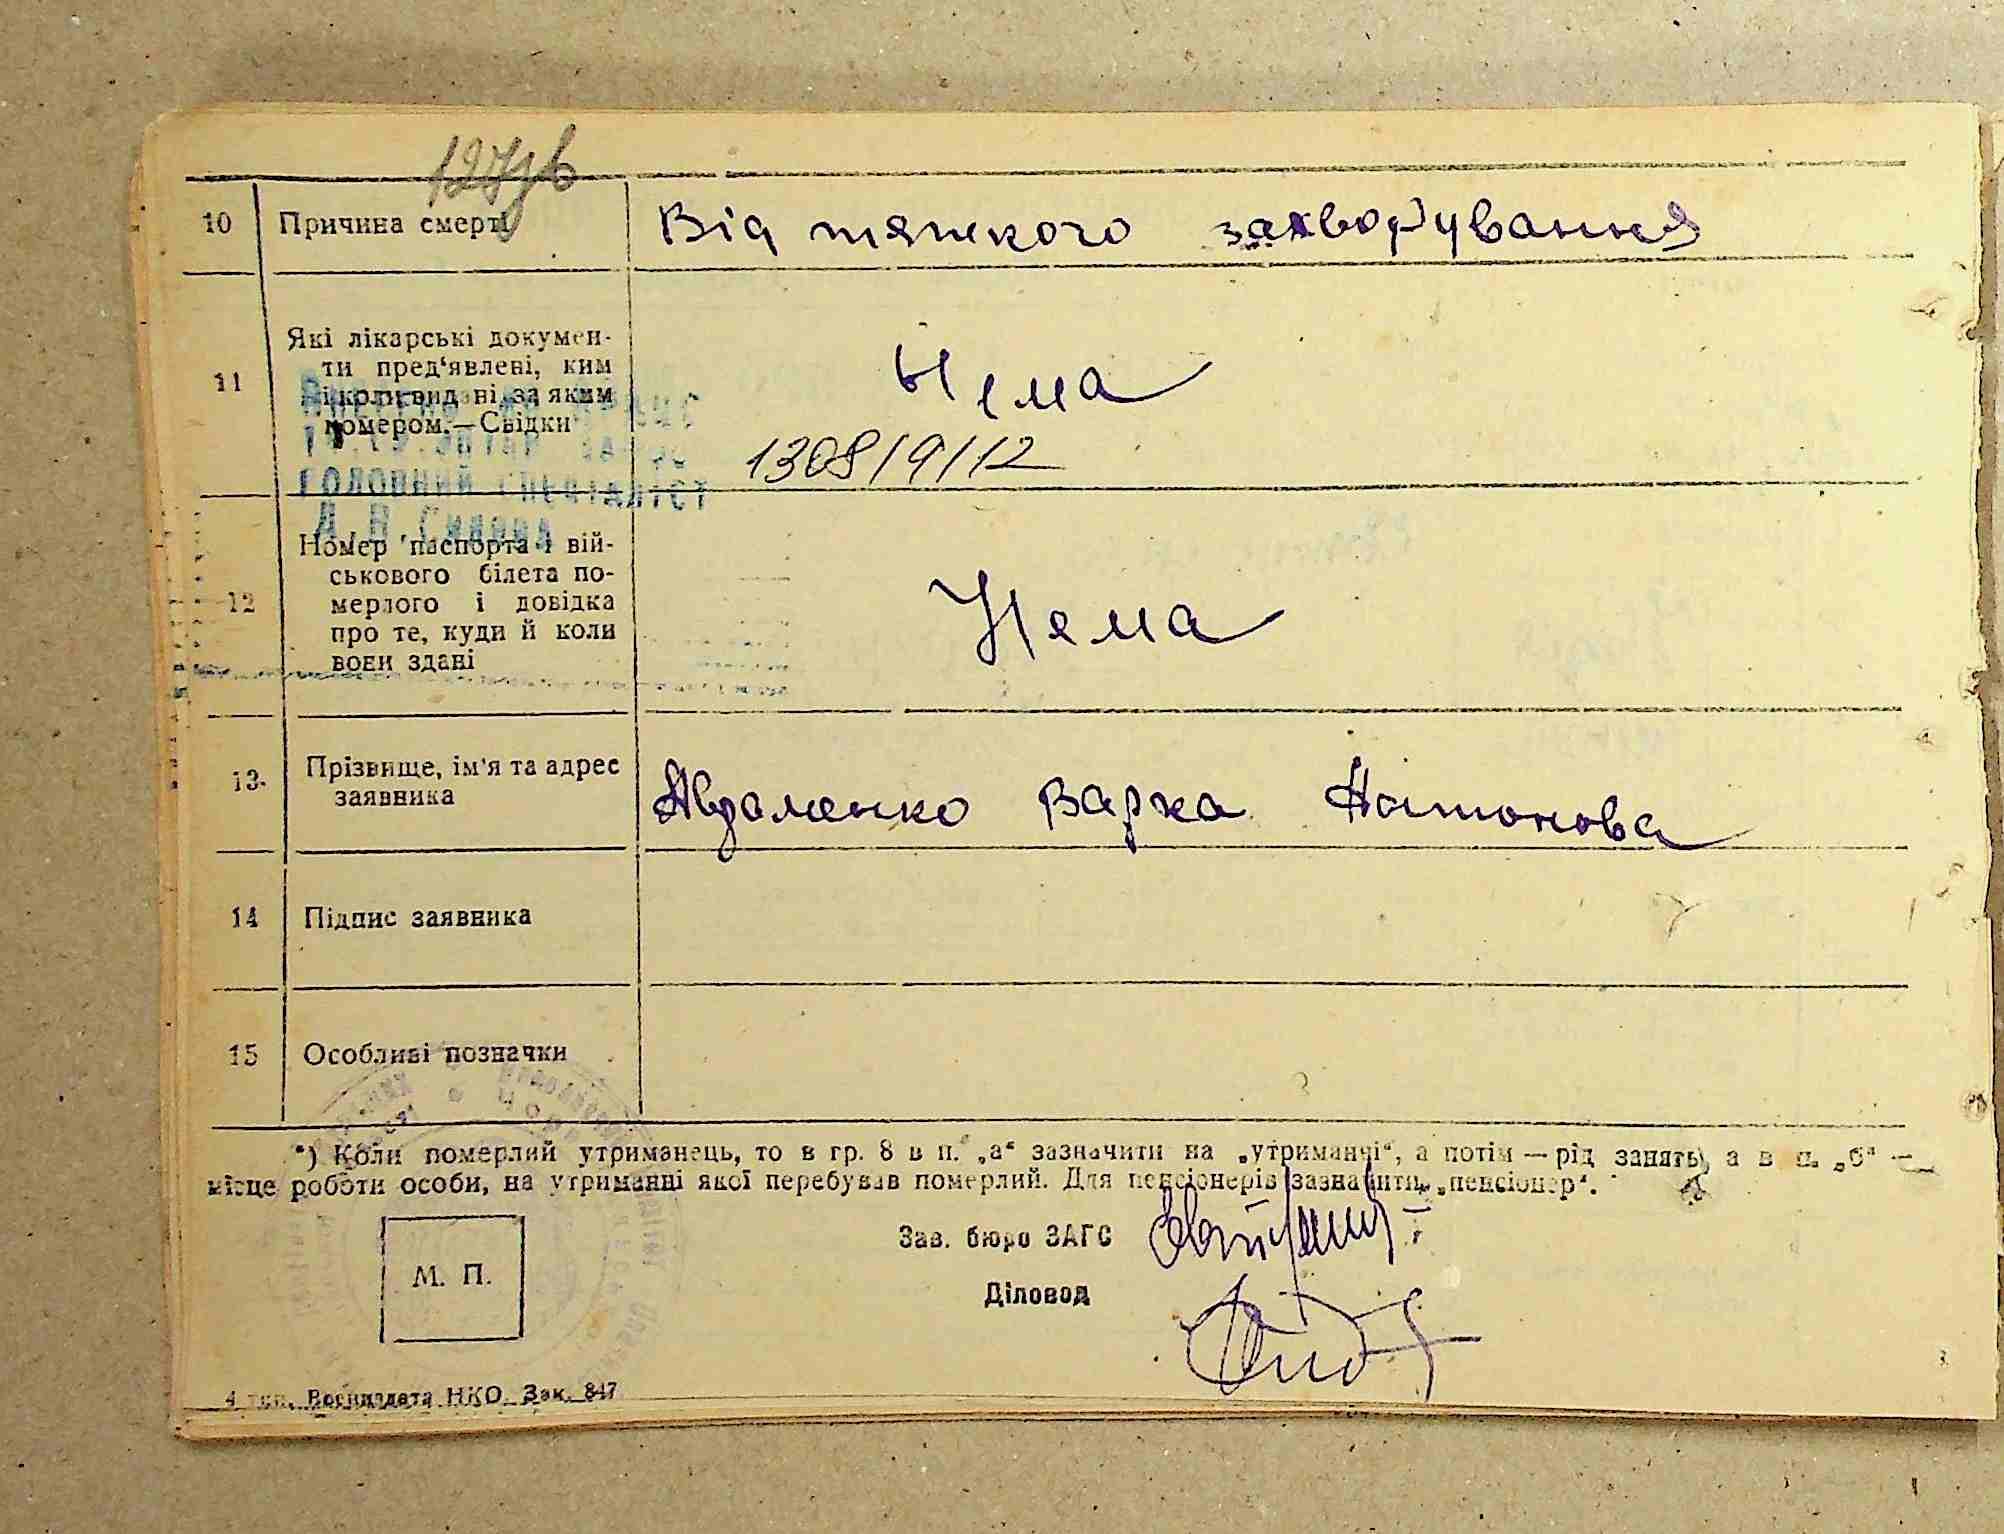 127зв
10 Причина смерті Від тяжкого захворування
11 Які лікарські докумен-
ти пред'явлені, ким
і коли видані за яким
номером.—Свідки
Нема
1308/9/12
головний спеціаліст
12 Номер паспорта і вій-
ськового білета по-
мерлого і довідка
про те, куди й коли
вони здані
Нема
13. Прізвище, ім'я та адрес
заявника
Авраменко Варка Антонова
14 Підпис заявника
15 Особливі позначки
*) Коли померлий утриманець, то в гр. 8 в п. „а“ зазначити на „утриманчі“, а потім — рід занять, а в п. „б“ —
місце роботи особи, на утриманні якої перебував померлий. Для пенсіонерів зазначити „пенсіонер“.
Зав. бюро ЗАГС
М. П.
Діловод
4 тип. Воениздата НКО. Зак. 847